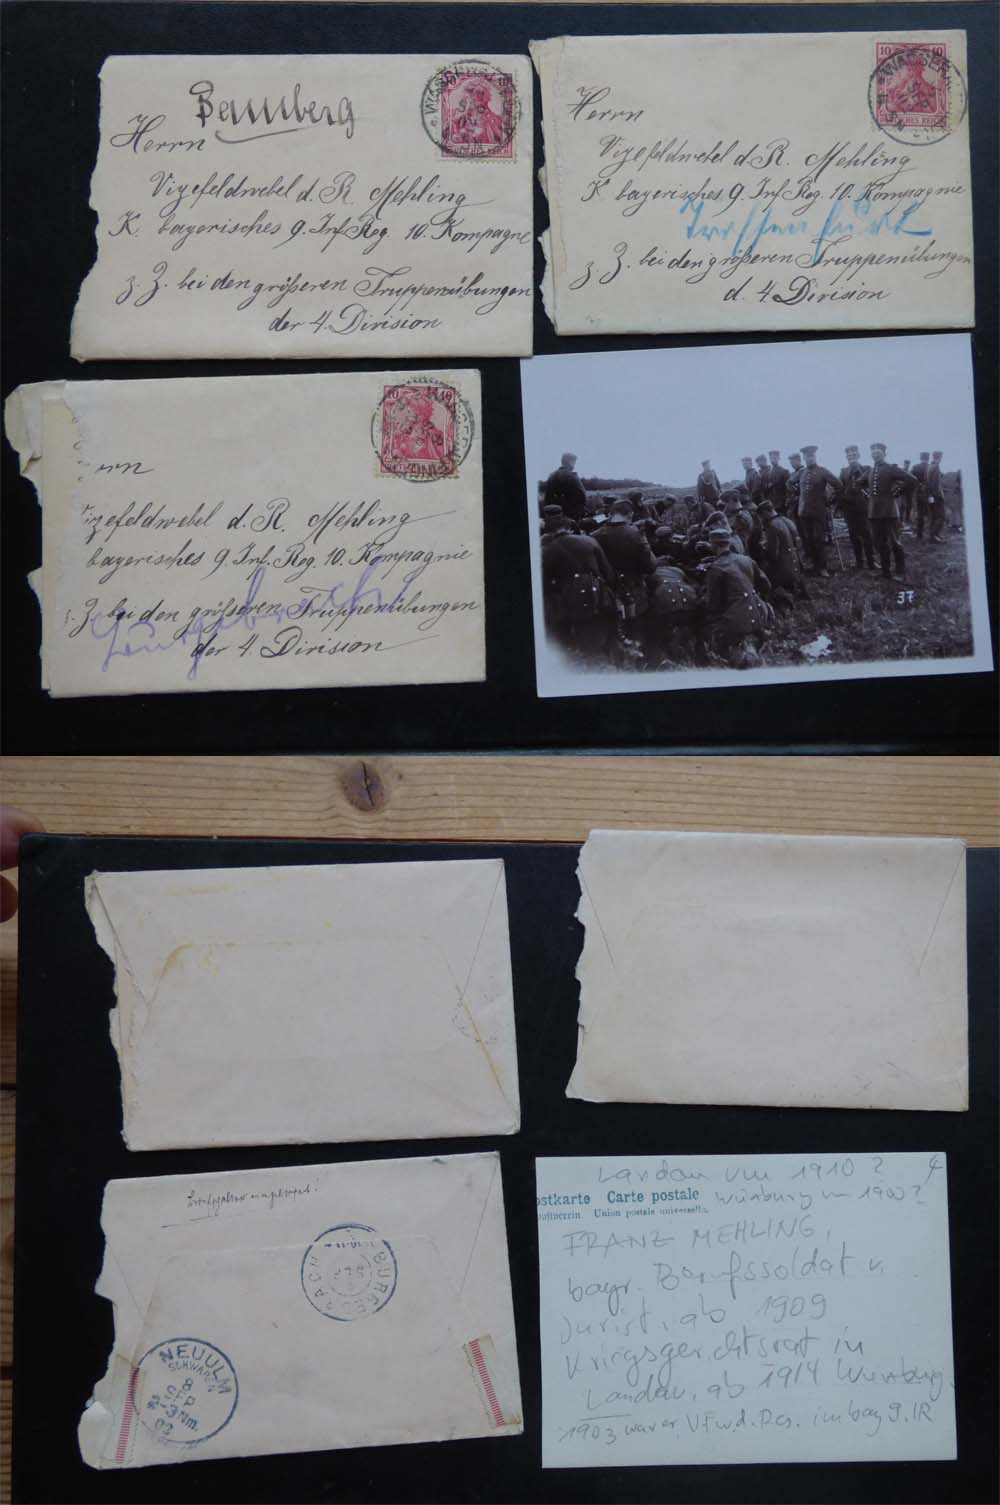 Bamberg
Herrn
Vizefeldwebel d. R. Mehling
K. bayerisches 9. Inf. Reg. 10. Kompagnie
z. Z. bei den größeren Truppenübungen
der 4. Division
10 10
DEUTSCHES REICH
Herrn
Vizefeldwebel d. R. Mehling
K bayerisches 9. Inf. Reg. 10. Kompagnie
z. Z. bei den größeren Truppenübungen
d. 4. Division
10 10
errn
Vizefeldwebel d. R. Mehling
bayerisches 9. Inf. Reg. 10. Kompagnie
z. Z. bei den größeren Truppenübungen
der 4. Division
37
BURGEBRACH
NEUULM
SCHWABEN
Landau um 1910?
ostkarte Carte postale
Würzburg um 1900?
Union postale universelle
FRANZ MEHLING,
bayr. Berufssoldat u.
Jurist, ab 1909
Kriegsgerichtsrat in
Landau, ab 1914 Würzburg.
1903 war er Vfw. d. Res. im bay 9. IR